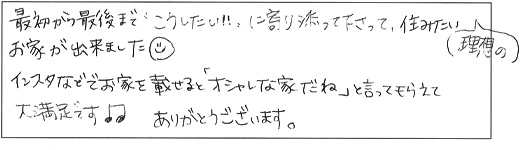 最初から最後まで“こうしたい!!”に寄り添って下さって、住みたい
理想の
お家が出来ました
インスタなどでお家を載せると「オシャレな家だね」と言ってもらえて
大満足です♫ ありがとうございます。